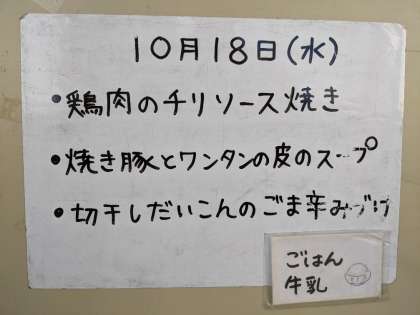 10月18日(水)
•鶏肉のチリソース焼き
•焼き豚とワンタンの皮のスープ
•切干しだいこんのごま辛みづけ
ごはん
牛乳